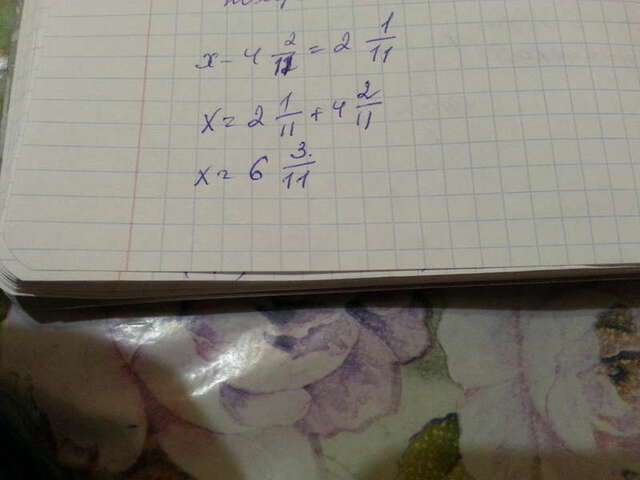 x - 4 2/11 = 2 1/11
x = 2 1/11 + 4 2/11
x = 6 3/11